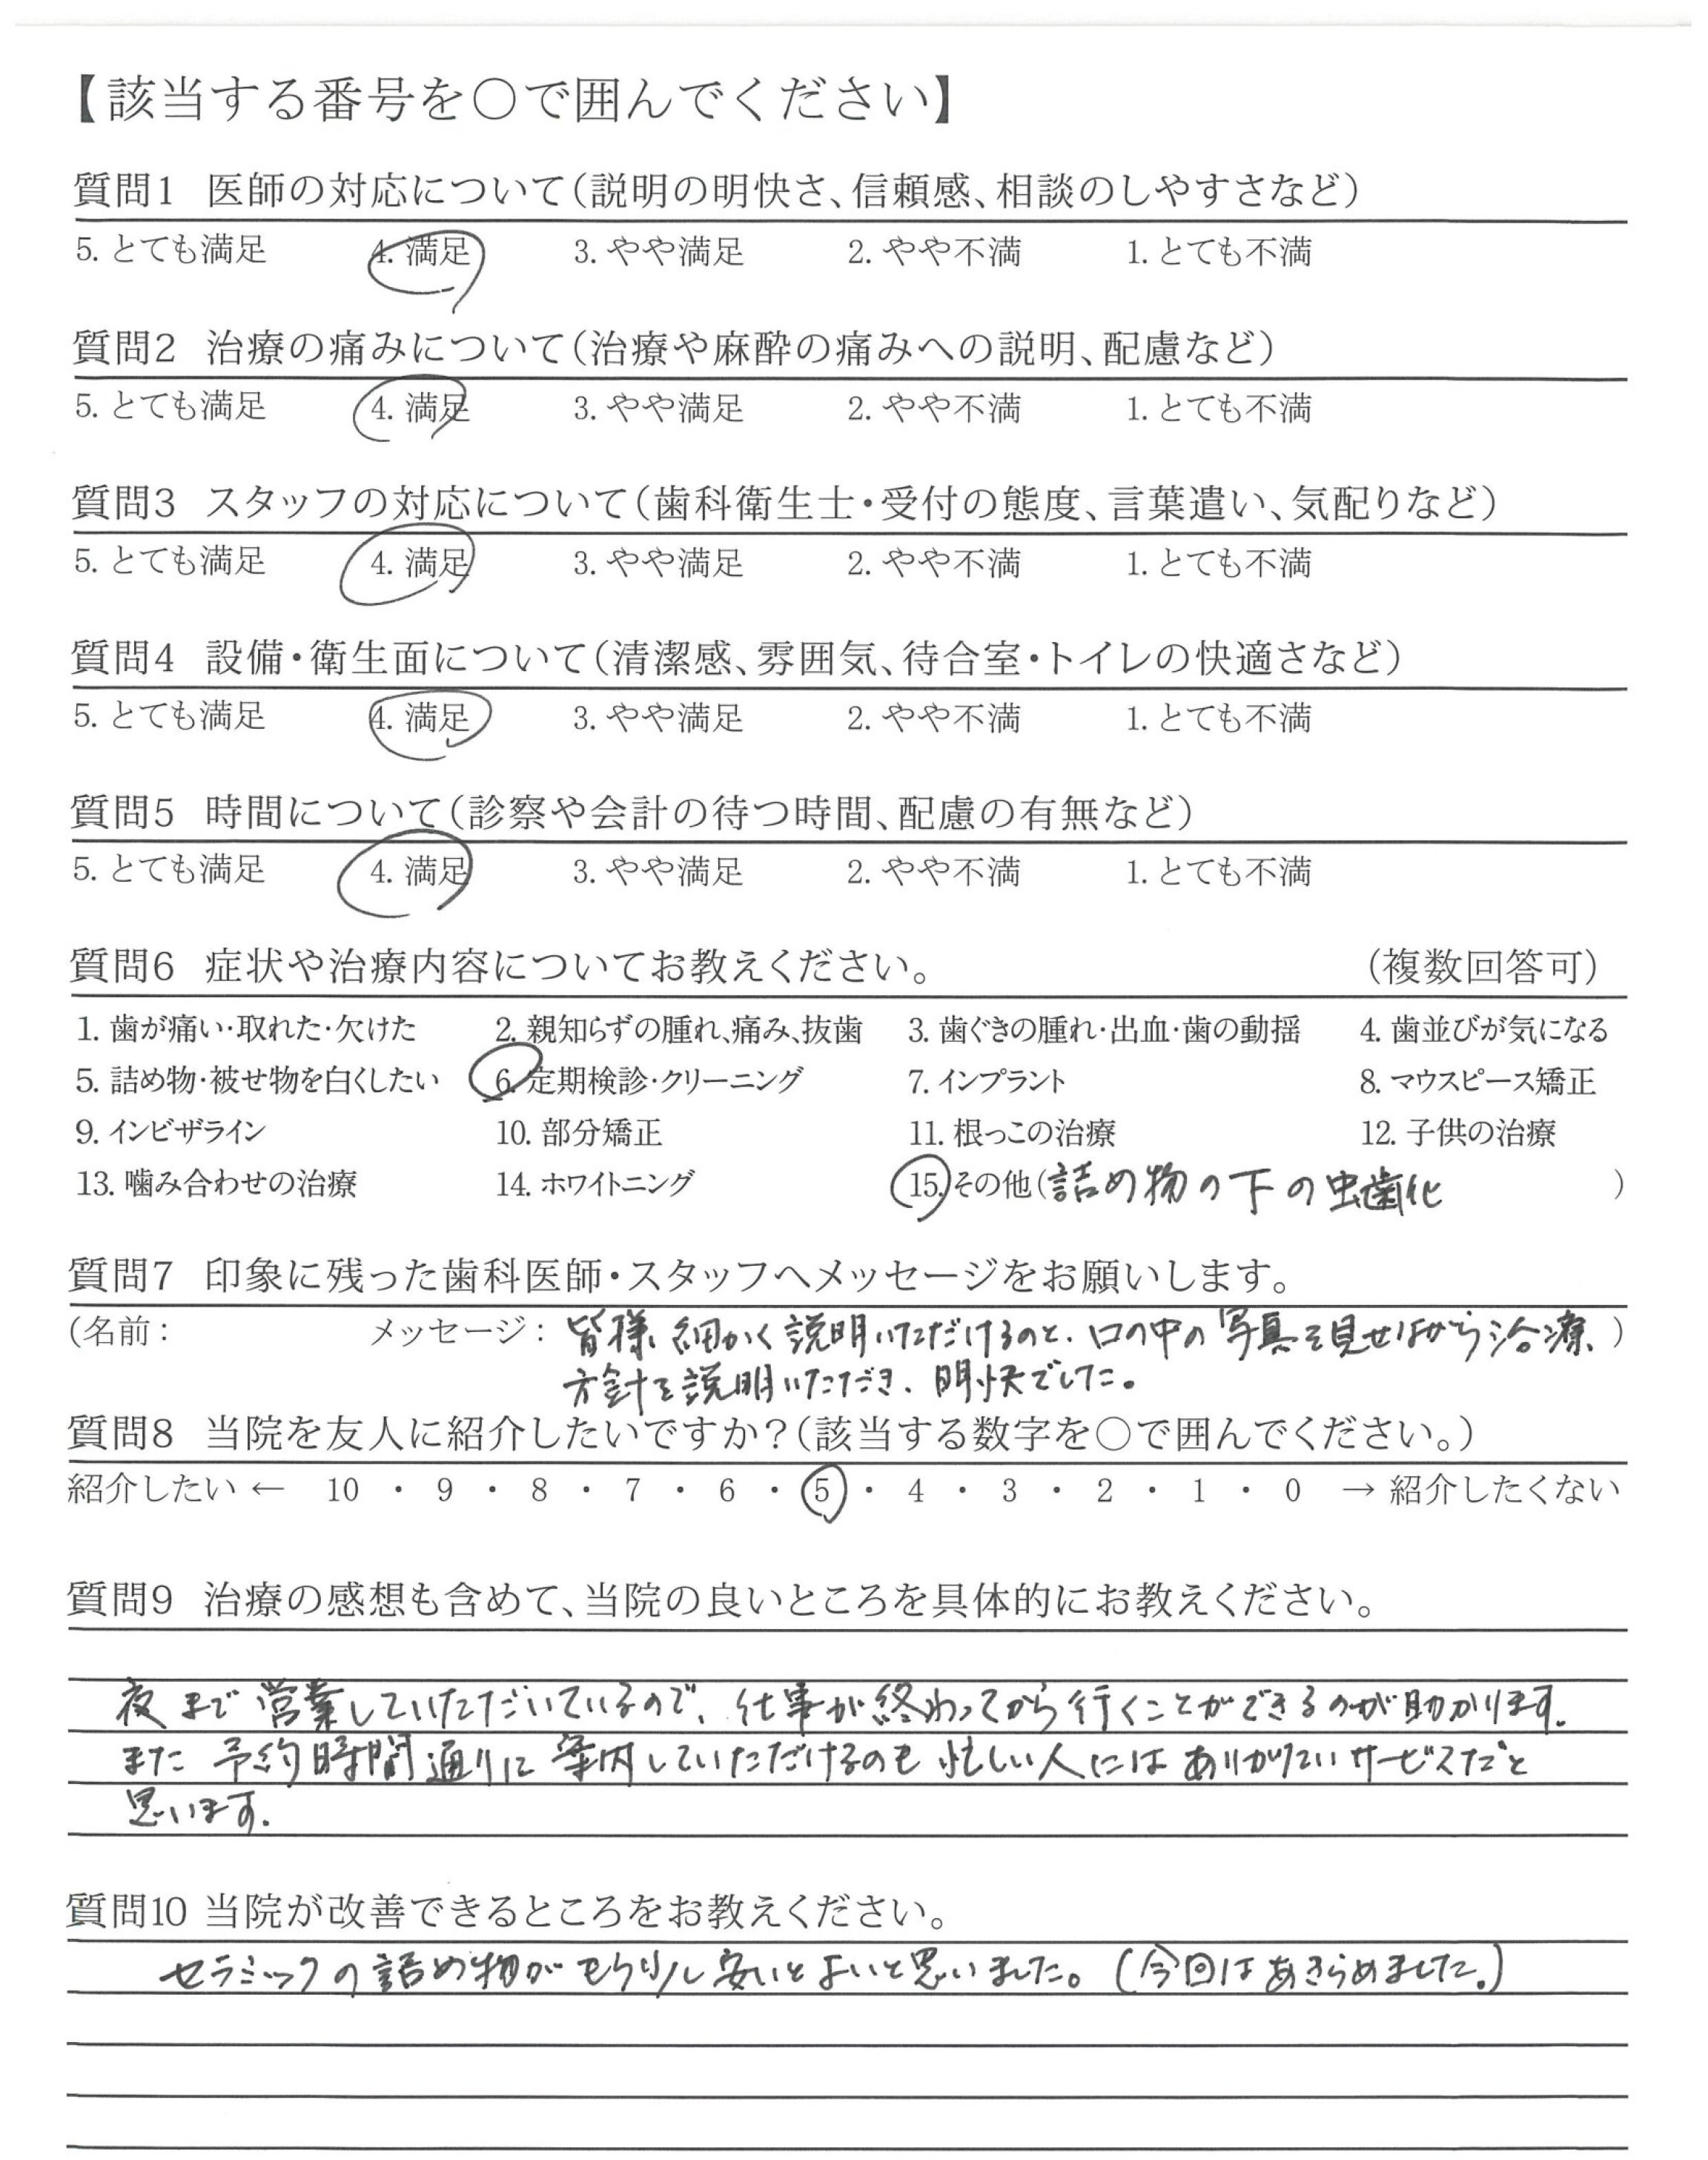 【該当する番号を○で囲んでください】
質問1 医師の対応について(説明の明快さ、信頼感、相談のしやすさなど)
5. とても満足 4. 満足 3. やや満足 2. やや不満 1. とても不満
質問2 治療の痛みについて(治療や麻酔の痛みへの説明、配慮など)
5. とても満足 4. 満足 3. やや満足 2. やや不満 1. とても不満
質問3 スタッフの対応について(歯科衛生士・受付の態度、言葉遣い、気配りなど)
5. とても満足 4. 満足 3. やや満足 2. やや不満 1. とても不満
質問4 設備・衛生面について(清潔感、雰囲気、待合室・トイレの快適さなど)
5. とても満足 4. 満足 3. やや満足 2. やや不満 1. とても不満
質問5 時間について(診察や会計の待つ時間、配慮の有無など)
5. とても満足 4. 満足 3. やや満足 2. やや不満 1. とても不満
質問6 症状や治療内容についてお教えください。 (複数回答可)
1. 歯が痛い・取れた・欠けた 2. 親知らずの腫れ、痛み、抜歯 3. 歯ぐきの腫れ・出血・歯の動揺 4. 歯並びが気になる
5. 詰め物・被せ物を白くしたい 6. 定期検診・クリーニング 7. インプラント 8. マウスピース矯正
9. インビザライン 10. 部分矯正 11. 根っこの治療 12. 子供の治療
13. 噛み合わせの治療 14. ホワイトニング 15. その他(詰め物の下の虫歯化 )
質問7 印象に残った歯科医師・スタッフへメッセージをお願いします。
(名前: メッセージ: 皆様、細かく説明いただけるのと、口の中の写真を見せながら治療 )
方針を説明いただき、明快でした。
質問8 当院を友人に紹介したいですか?(該当する数字を○で囲んでください。)
紹介したい ← 10 ・ 9 ・ 8 ・ 7 ・ 6 ・ 5 ・ 4 ・ 3 ・ 2 ・ 1 ・ 0 → 紹介したくない
質問9 治療の感想も含めて、当院の良いところを具体的にお教えください。
夜まで営業していただいているので、仕事が終わってから行くことができるのが助かります。
また予約時間通りに案内していただけるのも忙しい人にはありがたいサービスだと
思います。
質問10 当院が改善できるところをお教えください。
セラミックの詰め物がもう少し安いとよいと思いました。(今回はあきらめました。)